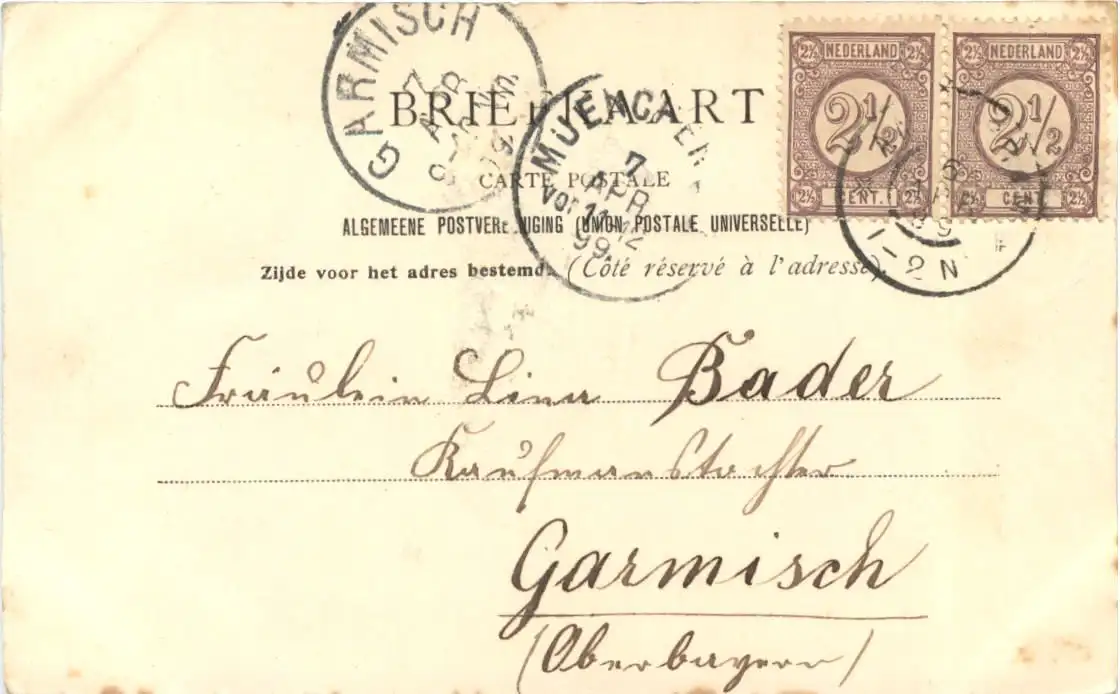 GARMISCH
7
APR
99.
NEDERLAND
2½
CENT.
NEDERLAND
2½
CENT.
BRIEFKAART
MUENCHEN
7
APR
Vor 11-12
99.
CARTE POSTALE
1-2 N
ALGEMEENE POSTVEREENIGING (UNION POSTALE UNIVERSELLE)
Zijde voor het adres bestemd. (Côté réservé à l'adresse).
Fräulein Lina Bader
Kaufmanstochter
Garmisch
(Oberbayern)